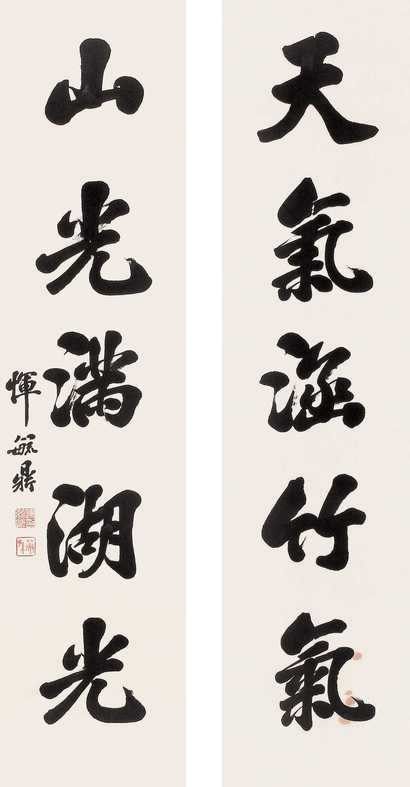 天氣涵竹氣
山光滿湖光
惲毓鼎